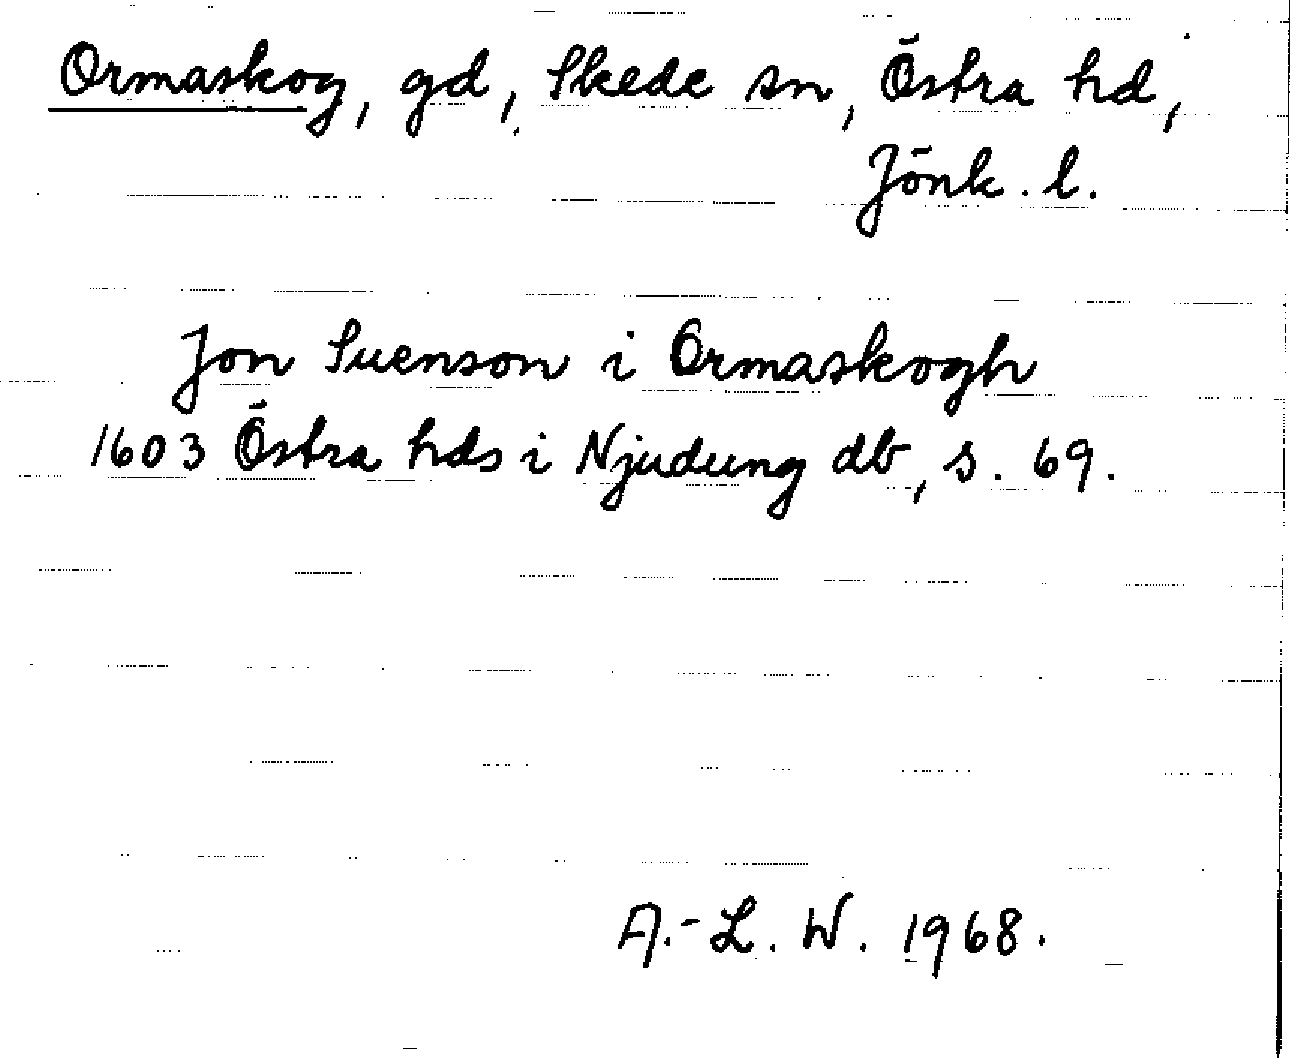 Ormaskog, gd, Skede sn, Östra hd,
Jönk. l.
Jon Suenson i Ormaskogh
1603 Östra hds i Njudung db, s. 69.
A.-L. W. 1968.